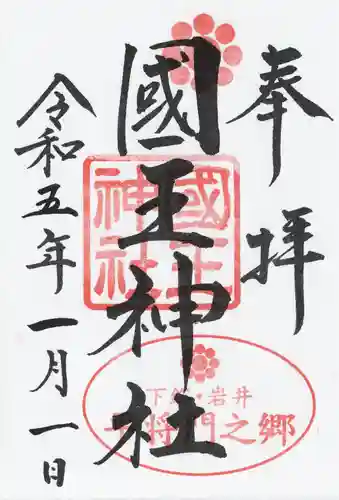 奉拝
國王神社
令和五年一月一日
國王
神社
下総・岩井
平将門之郷